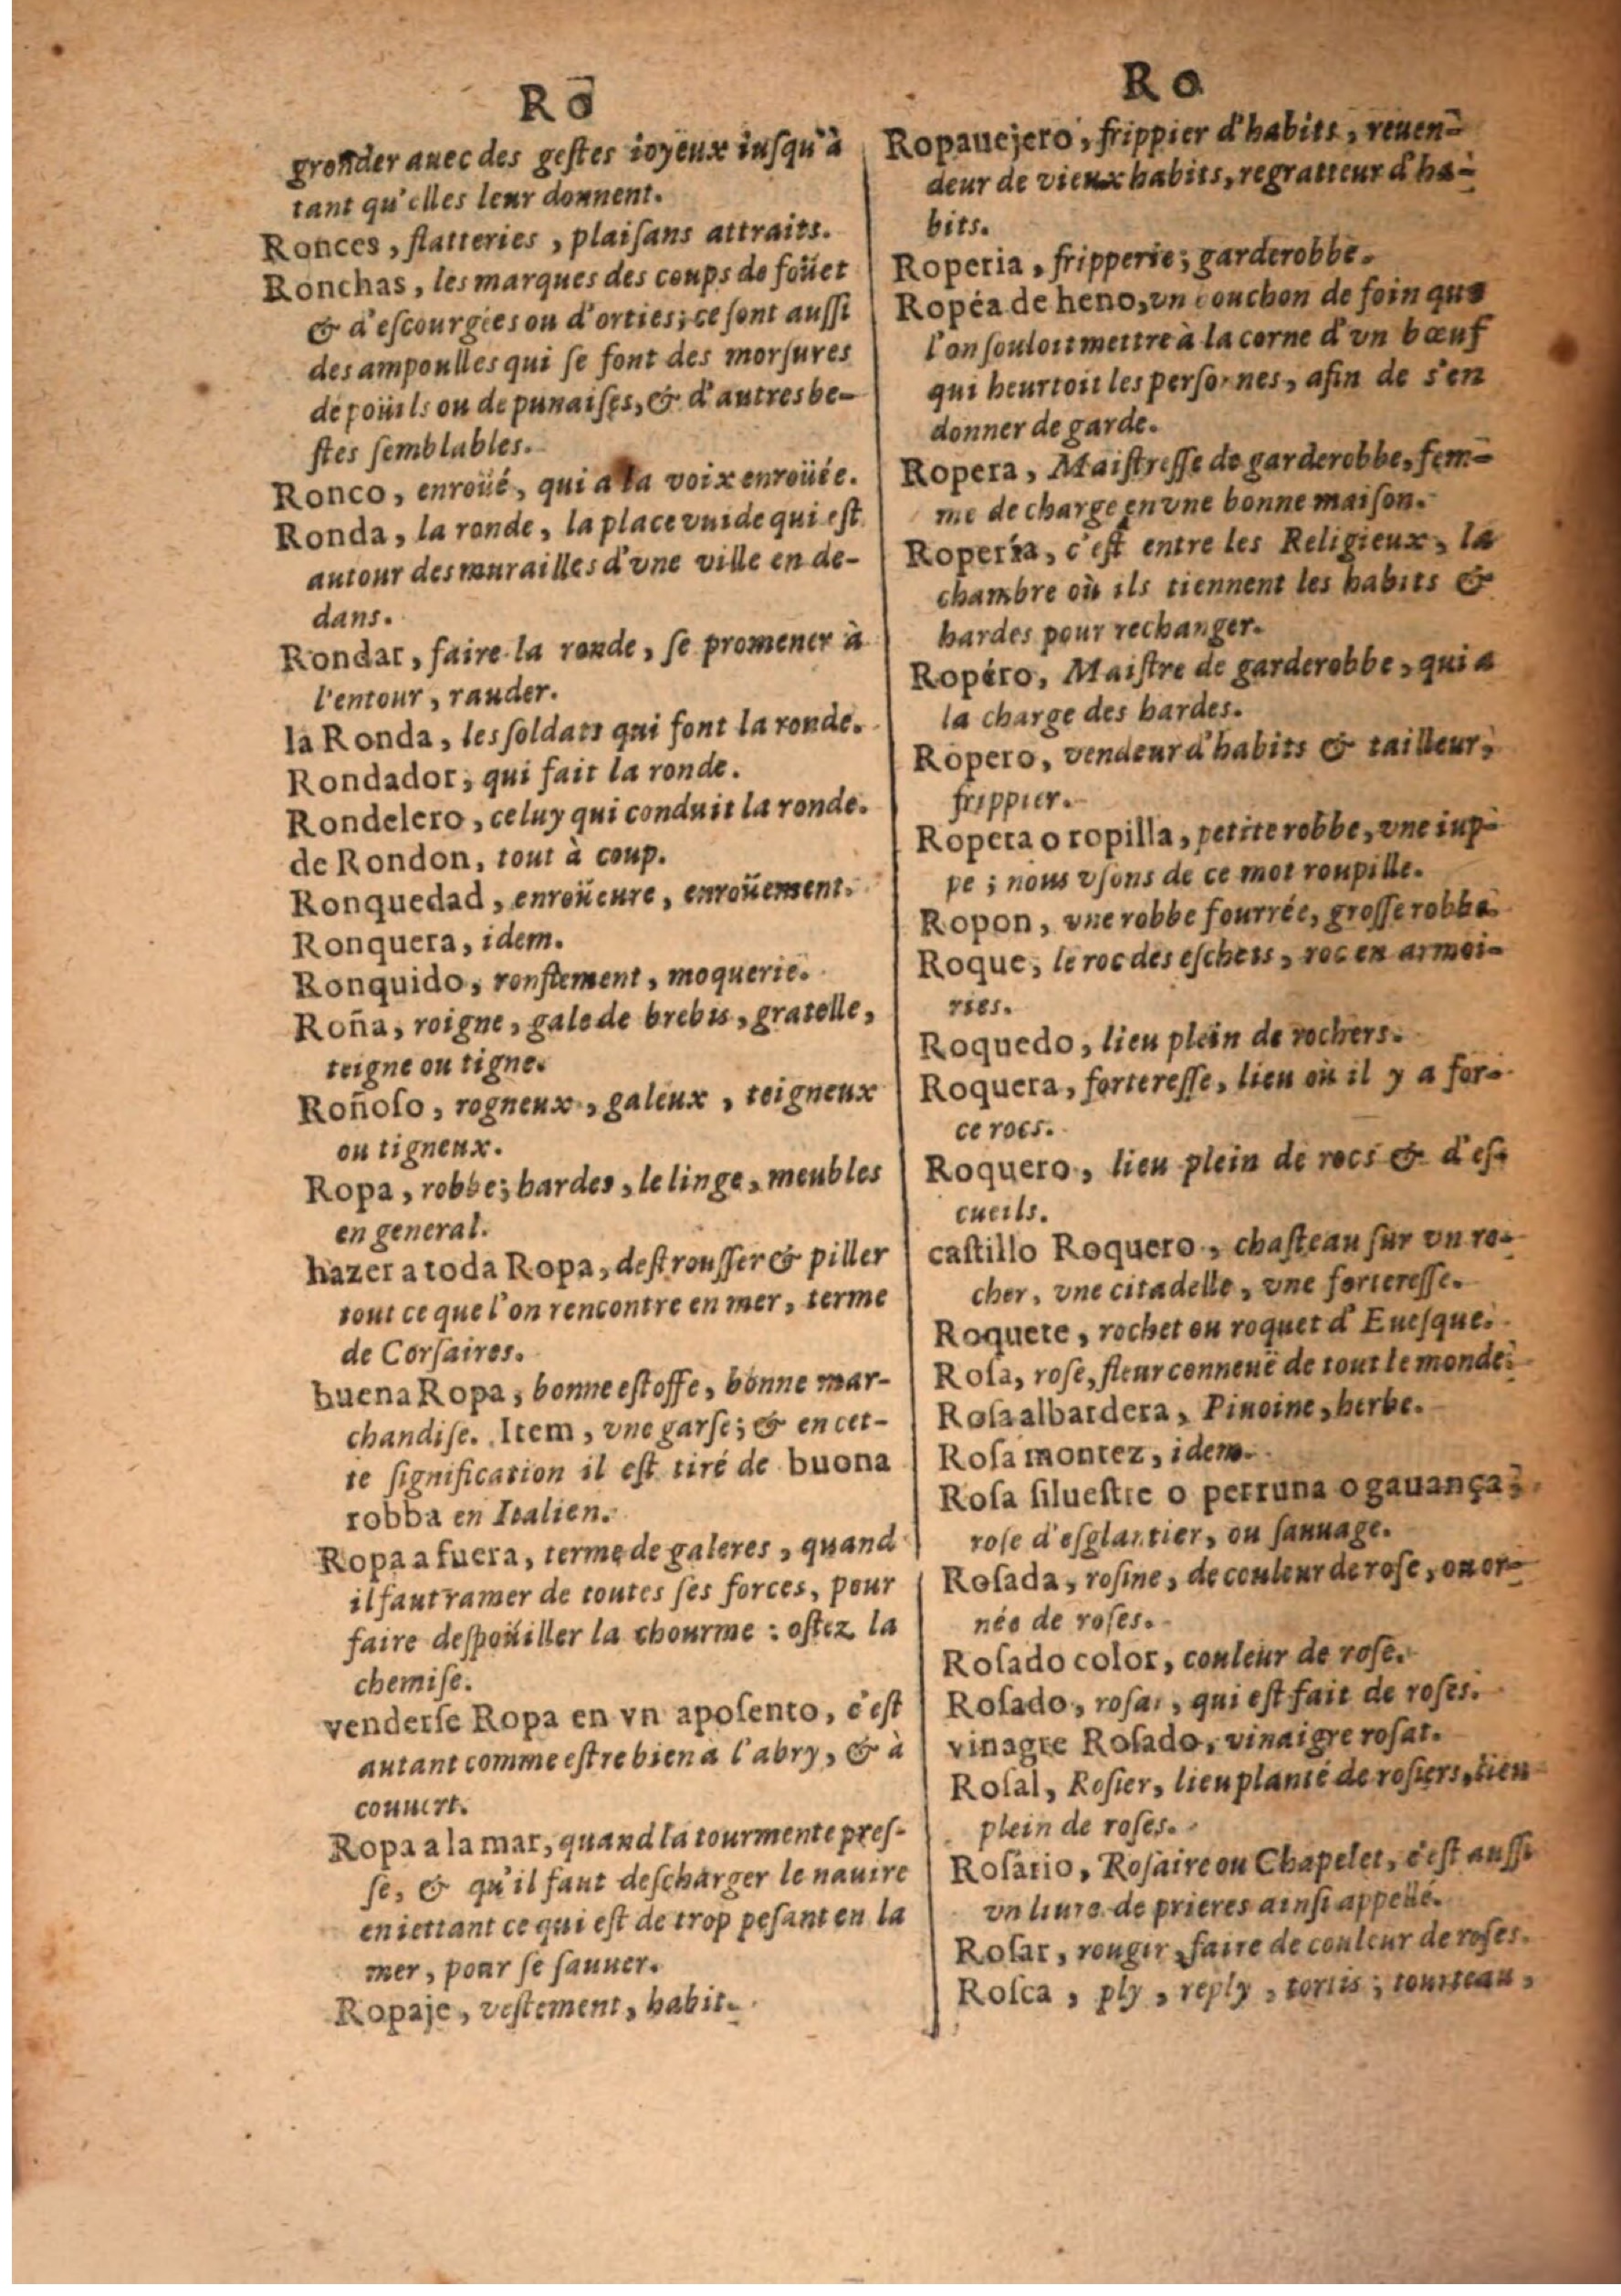 Ro
gronder auec des geſtes ioyeux iuſqu'à
tant qu'elles leur donnent.
Ronces, flatteries, plaiſans attraits.
Ronchas, les marques des coups de foüet
& d'eſcourgées ou d'orties; ce ſont auſſi
des ampoulles qui ſe font des morſures
de poüils ou de punaiſes, & d'autres be-
ſtes ſemblables.
Ronco, enroüé, qui a la voix enroüée.
Ronda, la ronde, la place vuide qui eſt
autour des murailles d'vne ville en de-
dans.
Rondar, faire la ronde, ſe promener à
l'entour, rauder.
la Ronda, les ſoldats qui font la ronde.
Rondador, qui fait la ronde.
Rondelero, celuy qui conduit la ronde.
de Rondon, tout à coup.
Ronquedad, enroüeure, enroüement.
Ronquera, idem.
Ronquido, ronflement, moquerie.
Roña, roigne, gale de brebis, gratelle,
teigne ou tigne.
Roñoſo, rogneux, galeux, teigneux
ou tigneux.
Ropa, robbe; hardes, le linge, meubles
en general.
hazer a toda Ropa, deſtrouſſer & piller
tout ce que l'on rencontre en mer, terme
de Corſaires.
buena Ropa, bonne eſtoffe, bonne mar-
chandiſe. Item, vne garſe; & en cet-
te ſignification il eſt tiré de buona
robba en Italien.
Ropa a fuera, terme de galeres, quand
il faut ramer de toutes ſes forces, pour
faire deſpoüiller la chourme : oſtez la
chemiſe.
venderſe Ropa en vn apoſento, c'eſt
autant comme eſtre bien à l'abry, & à
couuert.
Ropa a la mar, quand la tourmente preſ-
ſe, & qu'il faut deſcharger le nauire
en iettant ce qui eſt de trop peſant en la
mer, pour ſe ſauuer.
Ropaje, veſtement, habit.
Ro
Ropauejero, frippier d'habits, reuen-
deur de vieux habits, regratteur d'ha-
bits.
Roperia, fripperie; garderobbe.
Ropéa de heno, vn bouchon de foin que
l'on ſouloit mettre à la corne d'vn bœuf
qui heurtoit les perſonnes, afin de s'en
donner de garde.
Ropera, Maiſtreſſe de garderobbe, fem-
me de charge en vne bonne maiſon.
Ropería, c'eſt entre les Religieux, la
chambre où ils tiennent les habits &
hardes pour rechanger.
Ropéro, Maiſtre de garderobbe, qui a
la charge des hardes.
Ropero, vendeur d'habits & tailleur,
frippier.
Ropeta o ropilla, petite robbe, vne iup-
pe ; nous vſons de ce mot roupille.
Ropon, vne robbe fourrée, groſſe robbe.
Roque, le roc des eſchets, roc en armoi-
ries.
Roquedo, lieu plein de rochers.
Roquera, fortereſſe, lieu où il y a for-
ce rocs.
Roquero, lieu plein de rocs & d'eſ-
cueils.
caſtillo Roquero, chaſteau ſur vn ro-
cher, vne citadelle, vne fortereſſe.
Roquete, rochet ou roquet d'Eueſque.
Roſa, roſe, fleur conneuë de tout le monde.
Roſa albardera, Pinoine, herbe.
Roſa montez, idem.
Roſa ſilueſtre o perruna o gauança,
roſe d'eſglantier, ou ſauuage.
Roſada, roſine, de couleur de roſe, ou or-
née de roſes.
Roſado color, couleur de roſe.
Roſado, roſat, qui eſt fait de roſes.
vinagre Roſado, vinaigre roſat.
Roſal, Roſier, lieu planté de roſiers, lieu
plein de roſes.
Roſário, Roſaire ou Chapelet, c'eſt auſſi
vn liure de prieres ainſi appellé.
Roſar, rougir, faire de couleur de roſes.
Roſca, ply, reply, tortis; tourteau,